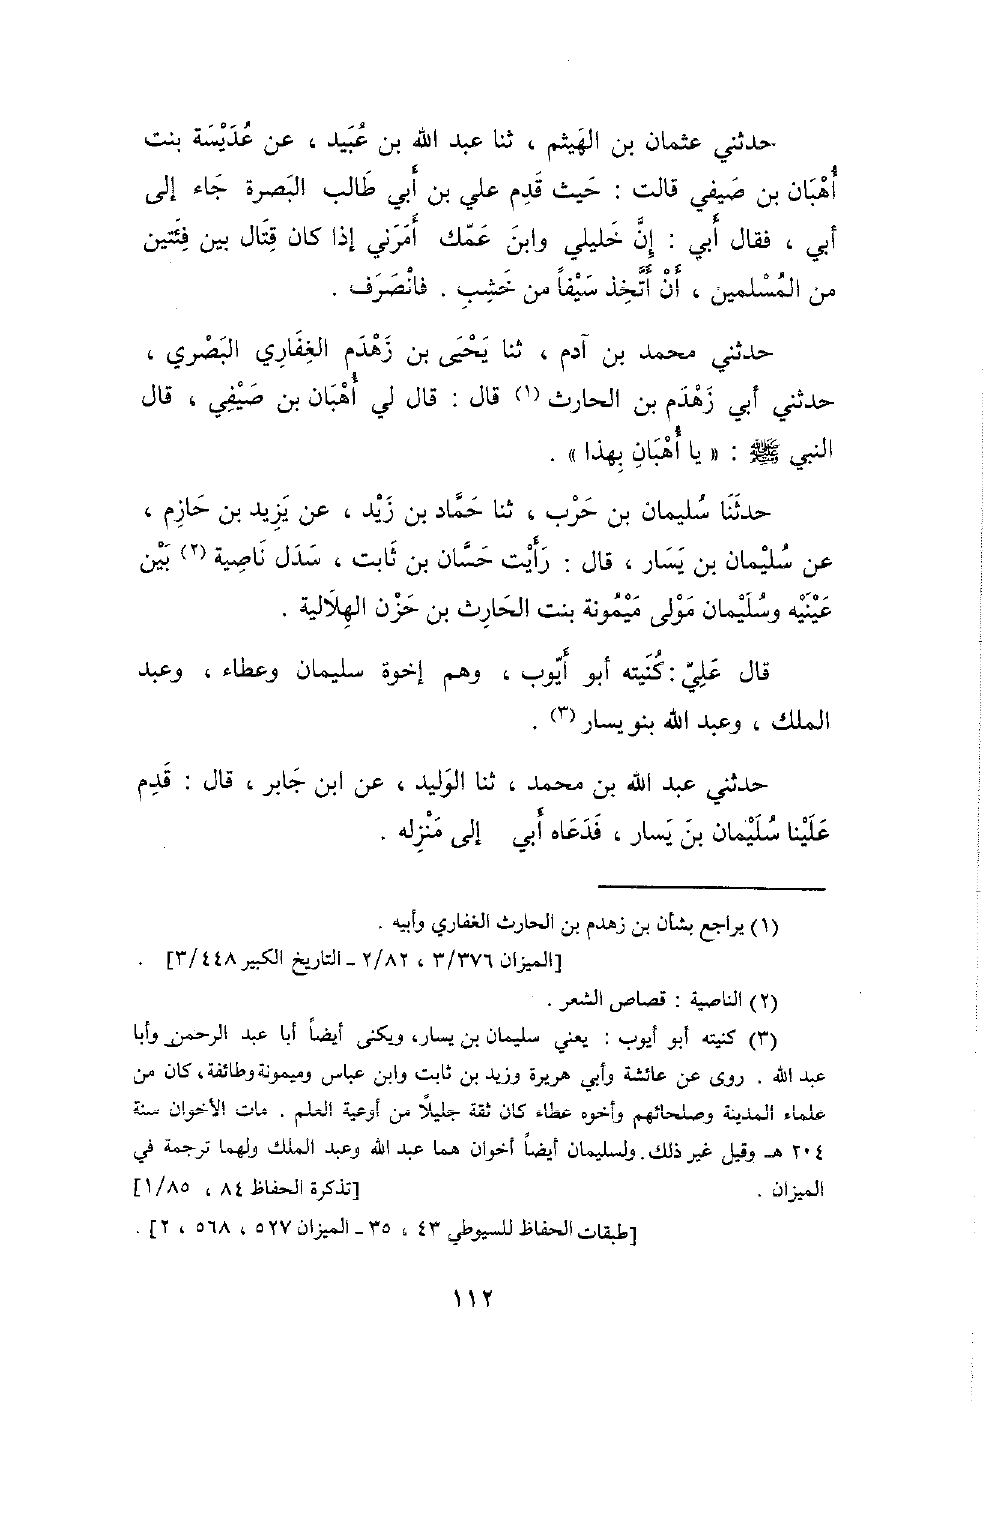 حدثني عثمان بن الهَيثم ، ثنا عبد الله بن عُبَيد ، عن عُدَيْسَة بنت
أُهْبَان بن صَيفي قالت : حَيث قَدِم علي بن أَبي طَالب البَصرة جَاء إلى
أبي ، فقال أَبي : إِنَّ خَليلي وابنَ عَمّك أَمَرَني إذا كان قِتَال بين فِئَتين
من المُسْلمين ، أَنْ أَتَّخِذ سَيْفاً من خَشبِ . فانْصَرَف .
حدثني محمد بن آدم ، ثنا يَحْيَى بن زَهْدَم الغِفَارِي البَصْري ،
حدثني أبي زَهْدَم بن الحارث (١) قال : قال لي أُهْبَان بن صَيْفِي ، قال
النبي ﷺ : « يا أُهْبَانِ بِهذا » .
حدثَنَا سُليمان بن حَرْب ، ثنا حَمَّاد بن زَيْد ، عن يَزِيد بن حَازِم ،
عن سُلَيْمان بن يَسَار ، قال : رَأَيْت حَسَّان بن ثَابت ، سَدَل نَاصِية (٢) بَيْن
عَيْنَيْه وسُلَيْمان مَوْلى مَيْمُونة بنت الحَارِث بن حَزْن الهِلَالية .
قال عَلِيّ : كُنَيته أبو أَيّوب ، وهم إخوة سليمان وعطاء ، وعبد
الملك ، وعبد الله بنو يسار (٣) .
حدثني عبد الله بن محمد ، ثنا الوَليد ، عن ابن جَابر ، قال : قَدِم
عَلَيْنا سُلَيْمان بنَ يَسار ، فَدَعَاه أَبي إلى مَنْزِله .
(١) يراجع بشأن بن زهدم بن الحارث الغفاري وأبيه .
[الميزان ٣/٣٧٦ ، ٢/٨٢ ـ التاريخ الكبير ٣/٤٤٨] .
(٢) الناصية : قصاص الشعر .
(٣) كنيته أبو أيوب : يعني سليمان بن يسار، ويكنى أيضاً أبا عبد الرحمن وأبا
عبد الله . روى عن عائشة وأبي هريرة وزيد بن ثابت وابن عباس وميمونة وطائفة، كان من
علماء المدينة وصلحائهم وأخوه عطاء كان ثقة جليلاً من أوعية العلم . مات الأخوان سنة
٢٠٤ هـ وقيل غير ذلك. ولسليمان أيضاً أخوان هما عبد الله وعبد الملك ولهما ترجمة في
الميزان . [تذكرة الحفاظ ٨٤ ، ١/٨٥]
[طبقات الحفاظ للسيوطي ٤٣ ، ٣٥ ـ الميزان ٥٢٧ ، ٥٦٨ ، ٢] .
١١٢